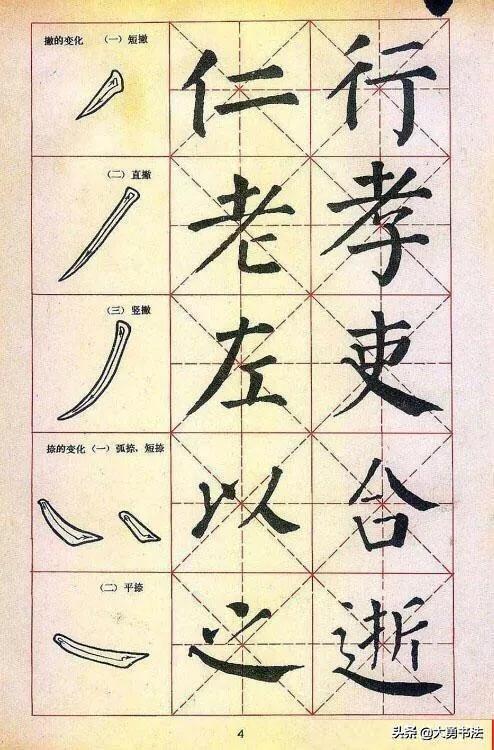 撇的变化 (一) 短撇
仁 行
(二) 直撇
老 孝
(三) 竖撇
左 吏
捺的变化 (一) 弧捺、短捺
以 合
(二) 平捺
之 逝
4
头条 @大勇书法